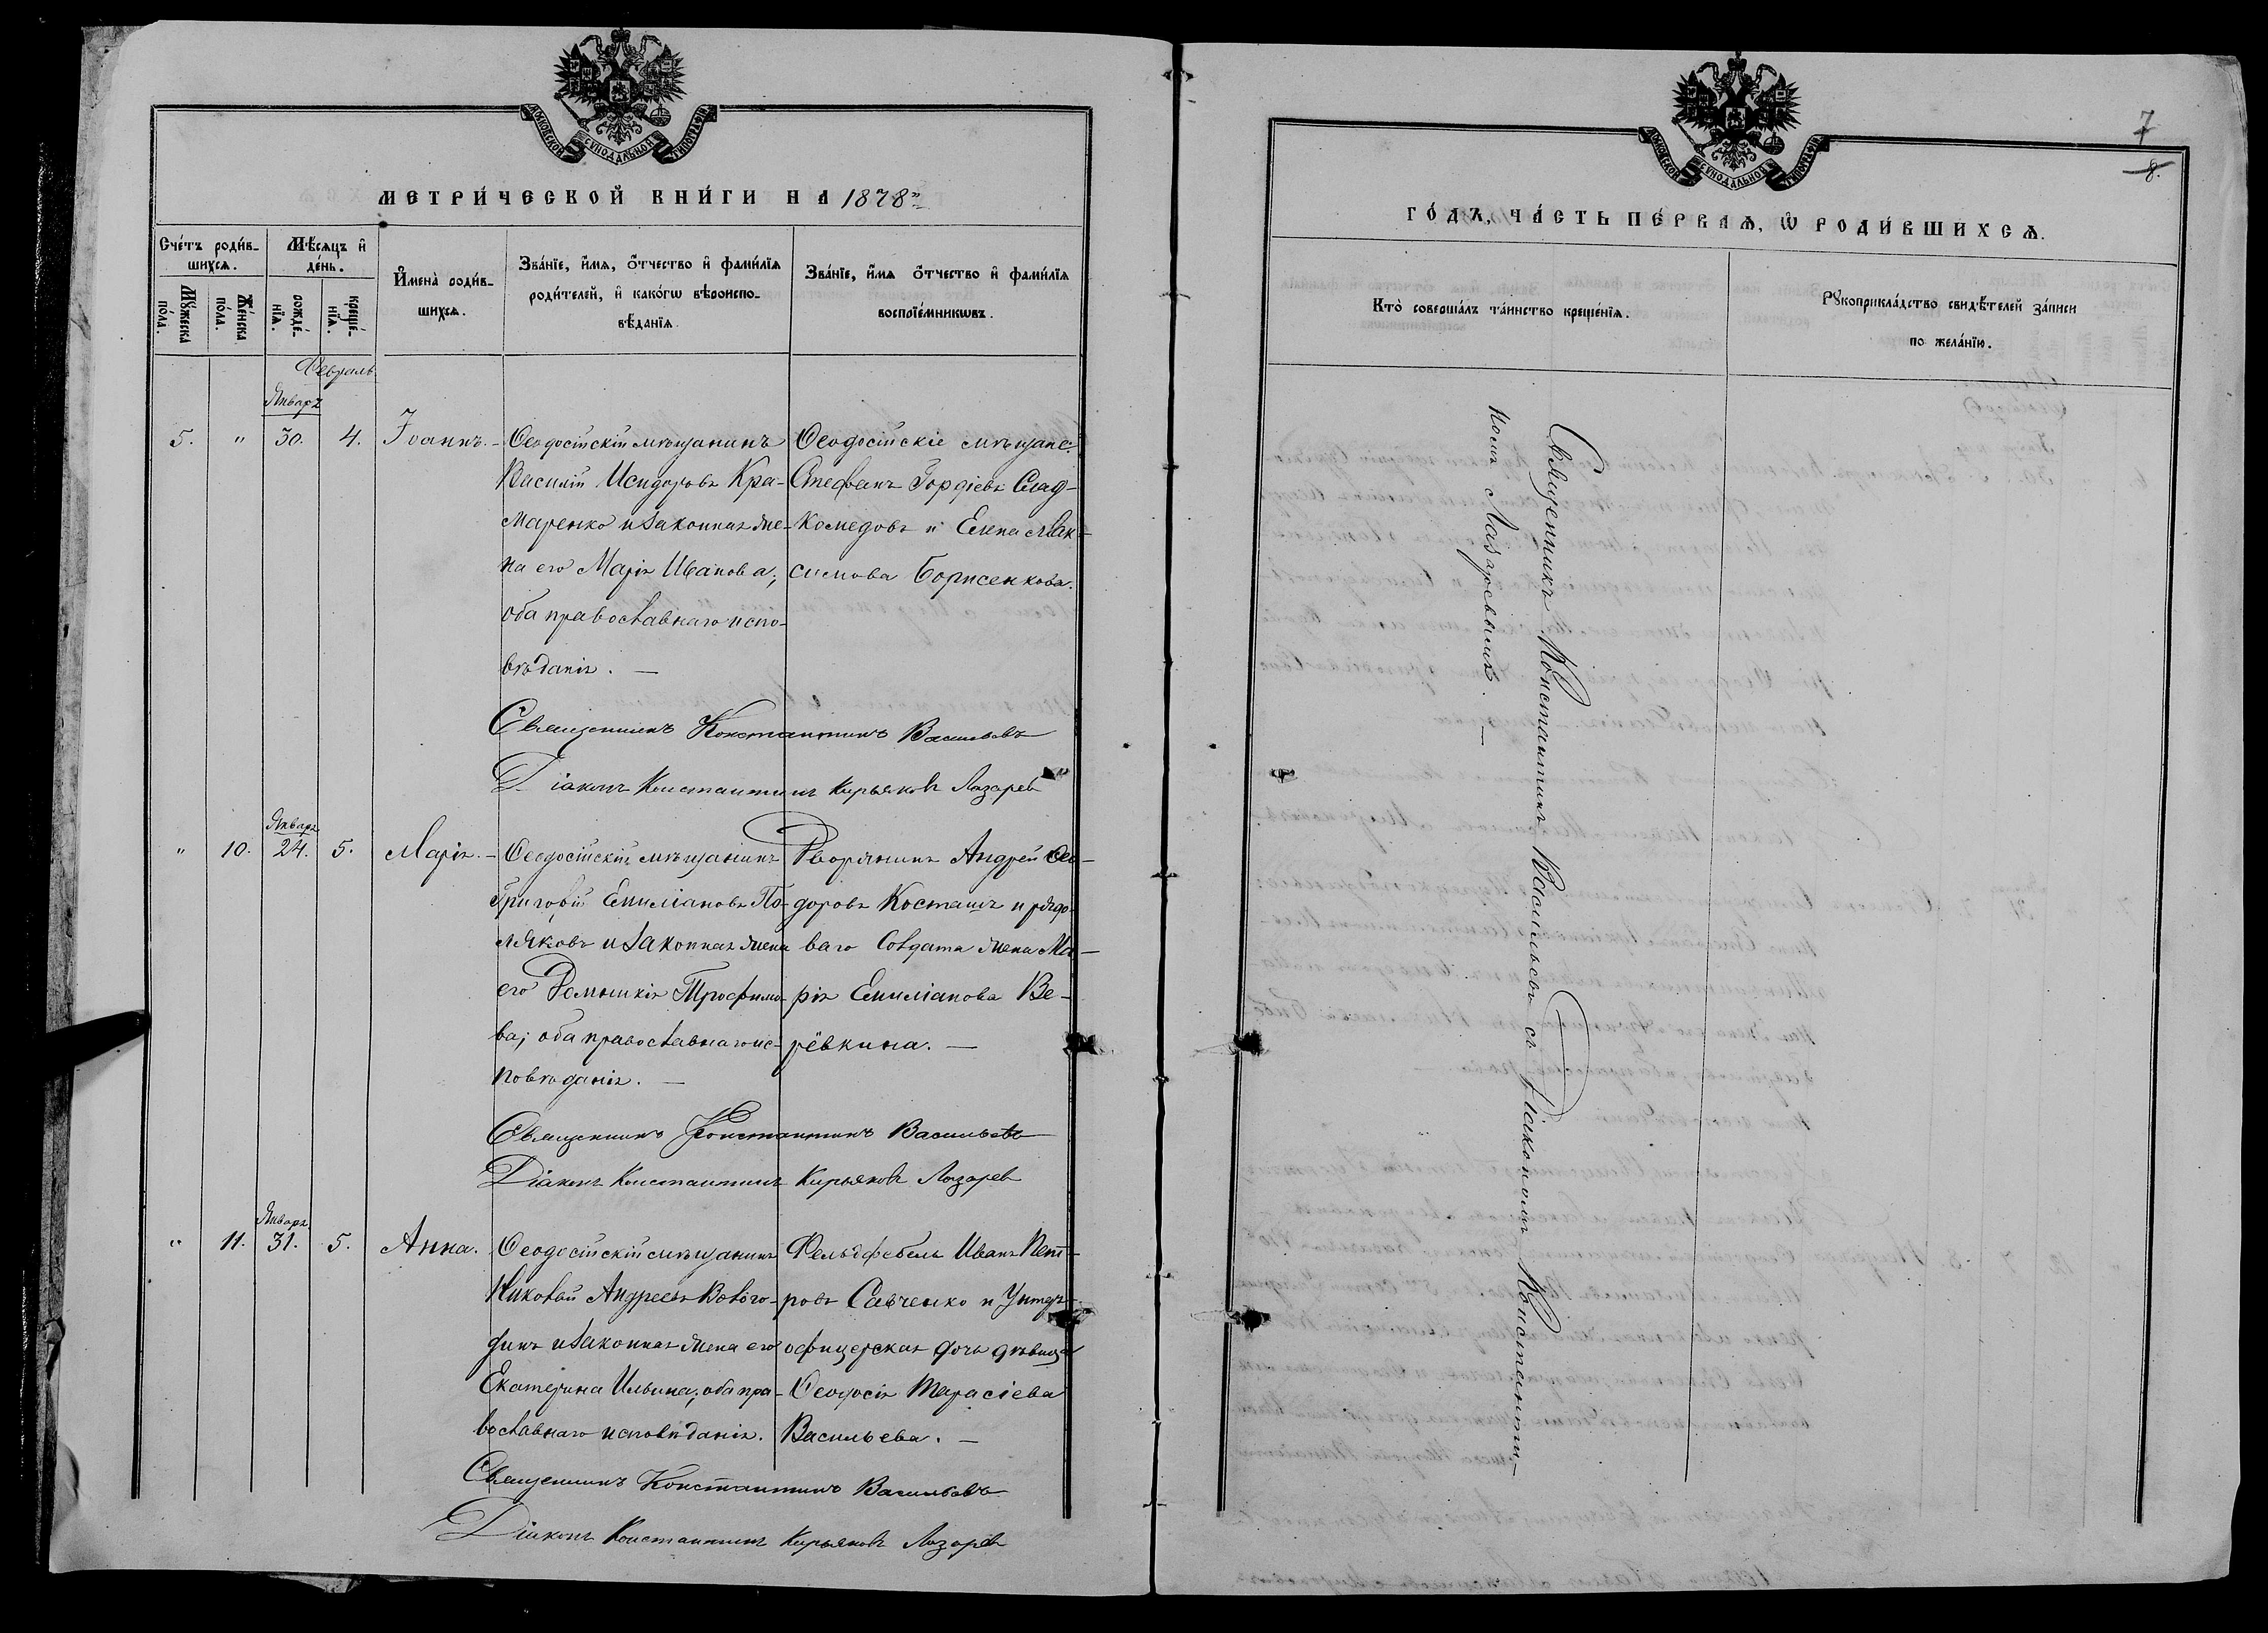 МОСКОВСКОЙ СУНОДАЛЬНОЙ ТИПОГРАФІИ
МЕТРИ́ЧЕСКОЙ КНИ́ГИ НА 1878й
Сче́тъ роди́в-
шихсѧ.
Мѣ́сѧцъ и҆
де́нь.
И҆мена̀ роди́в-
шихсѧ.
Зва́нїе, и҆́мѧ, ѻ҆́тчество и҆ фами́лїѧ
роди́телей, и҆ како́гѡ вѣроиспо-
вѣ́данїѧ.
Зва́нїе, и҆́мѧ ѻ҆́тчество и҆ фами́лїѧ
воспрїе́мникѡвъ.
Мꙋ́жеска
по́ла.
Же́нска
по́ла.
рожде́-
нїѧ.
креще́-
нїѧ.
Февраль
Январь
5. " 30. 4. Іоаннъ. - Ѳеодосійскій мѣщанинъ
Василій Исидоровъ Кра-
маренко и законная же-
на его Марія Иванова;
оба православнаго испо-
вѣданія. —
Ѳеодосійскіе мѣщане:
Стефанъ Гордіевъ Слад-
комедовъ и Елена Мак-
симова Борисенкова.
Священникъ Константинъ Васильевъ
Діаконъ Константинъ Кирьяковъ Лазаревъ
Январь
" 10. 24. 5. Марія. - Ѳеодосійскій мѣщанинъ
Григорій Емиліановъ По-
ляковъ и законная жена
его Домникія Трофимо-
ва; оба православнаго ис-
повѣданія. —
Дворянинъ Андрей Ѳео-
доровъ Косташъ и рядо-
ваго солдата жена Ма-
рія Емиліанова Ве-
рёвкина. —
Священникъ Константинъ Васильевъ
Діаконъ Константинъ Кирьяковъ Лазаревъ
Январь
" 11. 31. 5. Анна. Ѳеодосійскій мѣщанинъ
Николай Андреевъ Волого-
динъ и законная жена его
Екатерина Ильина; оба пра-
вославнаго исповѣданія.
Фельдфебель Иванъ Пет-
ровъ Савченко и Унтеръ-
офицерская дочь дѣвица
Ѳеодосія Тарасіева
Васильева. —
Священникъ Константинъ Васильевъ
Діаконъ Константинъ Кирьяковъ Лазаревъ
МОСКОВСКОЙ СУНОДАЛЬНОЙ ТИПОГРАФІИ
7
8.
ГО́ДЪ, ЧА́СТЬ ПЕ́РВАѦ, Ѡ҆ РОДИ́ВШИХСѦ.
Кто̀ соверша́лъ та́инство креще́нїѧ.
Рꙋкоприкла́дство свидѣ́телей за́писи
по жела́нїю.
Священникъ Константинъ Васильевъ съ Діакономъ Константи-
номъ Лазаревымъ. —